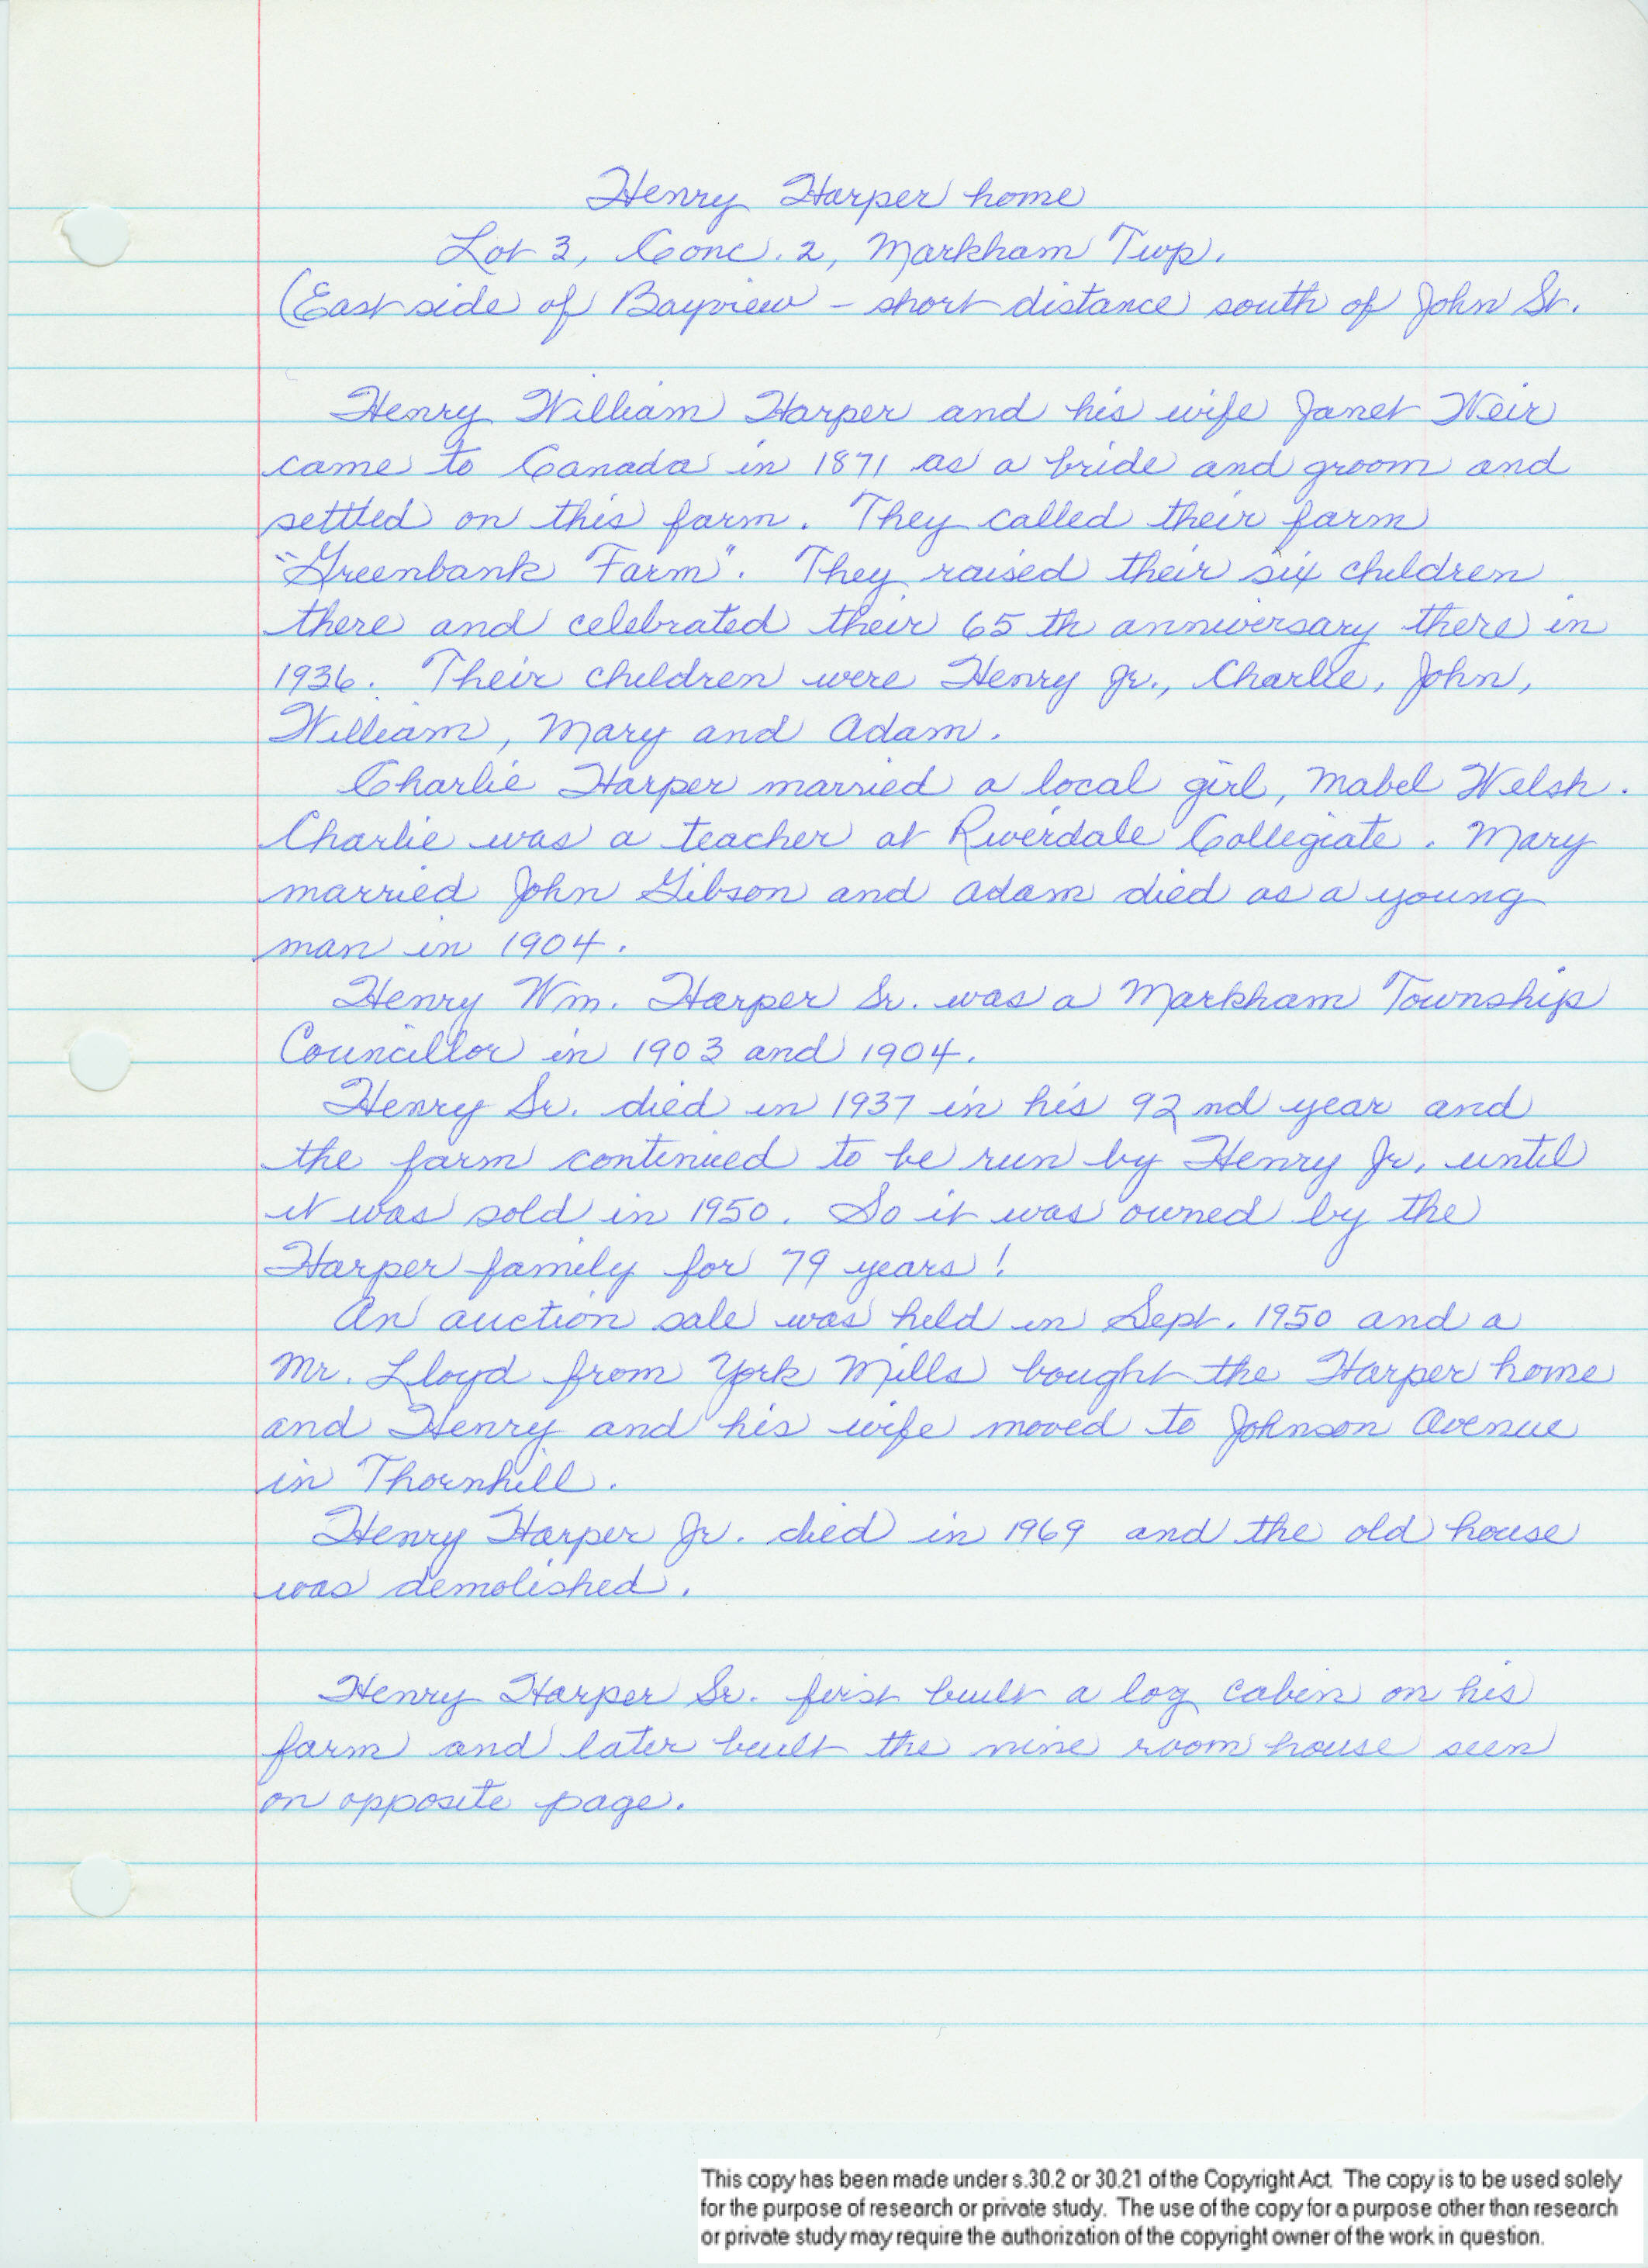 Henry Harper home
Lot 3, Conc. 2, Markham Twp.
(East side of Bayview - short distance south of John St.
Henry William Harper and his wife Janet Weir
came to Canada in 1871 as a bride and groom and
settled on this farm. They called their farm
"Greenbank Farm". They raised their six children
there and celebrated their 65 th anniversary there in
1936. Their children were Henry Jr., Charlie, John,
William, Mary and Adam.
Charlie Harper married a local girl, Mabel Welsh.
Charlie was a teacher at Riverdale Collegiate. Mary
married John Gibson and Adam died as a young
man in 1904.
Henry Wm. Harper Sr. was a Markham Township
Councillor in 1903 and 1904.
Henry Sr. died in 1937 in his 92 nd year and
the farm continued to be run by Henry Jr. until
it was sold in 1950. So it was owned by the
Harper family for 79 years!
An auction sale was held in Sept. 1950 and a
Mr. Lloyd from York Mills bought the Harper home
and Henry and his wife moved to Johnson Avenue
in Thornhill.
Henry Harper Jr. died in 1969 and the old house
was demolished.
Henry Harper Sr. first built a log cabin on his
farm and later built the nine room house seen
on opposite page.
This copy has been made under s.30.2 or 30.21 of the Copyright Act. The copy is to be used solely
for the purpose of research or private study. The use of the copy for a purpose other than research
or private study may require the authorization of the copyright owner of the work in question.